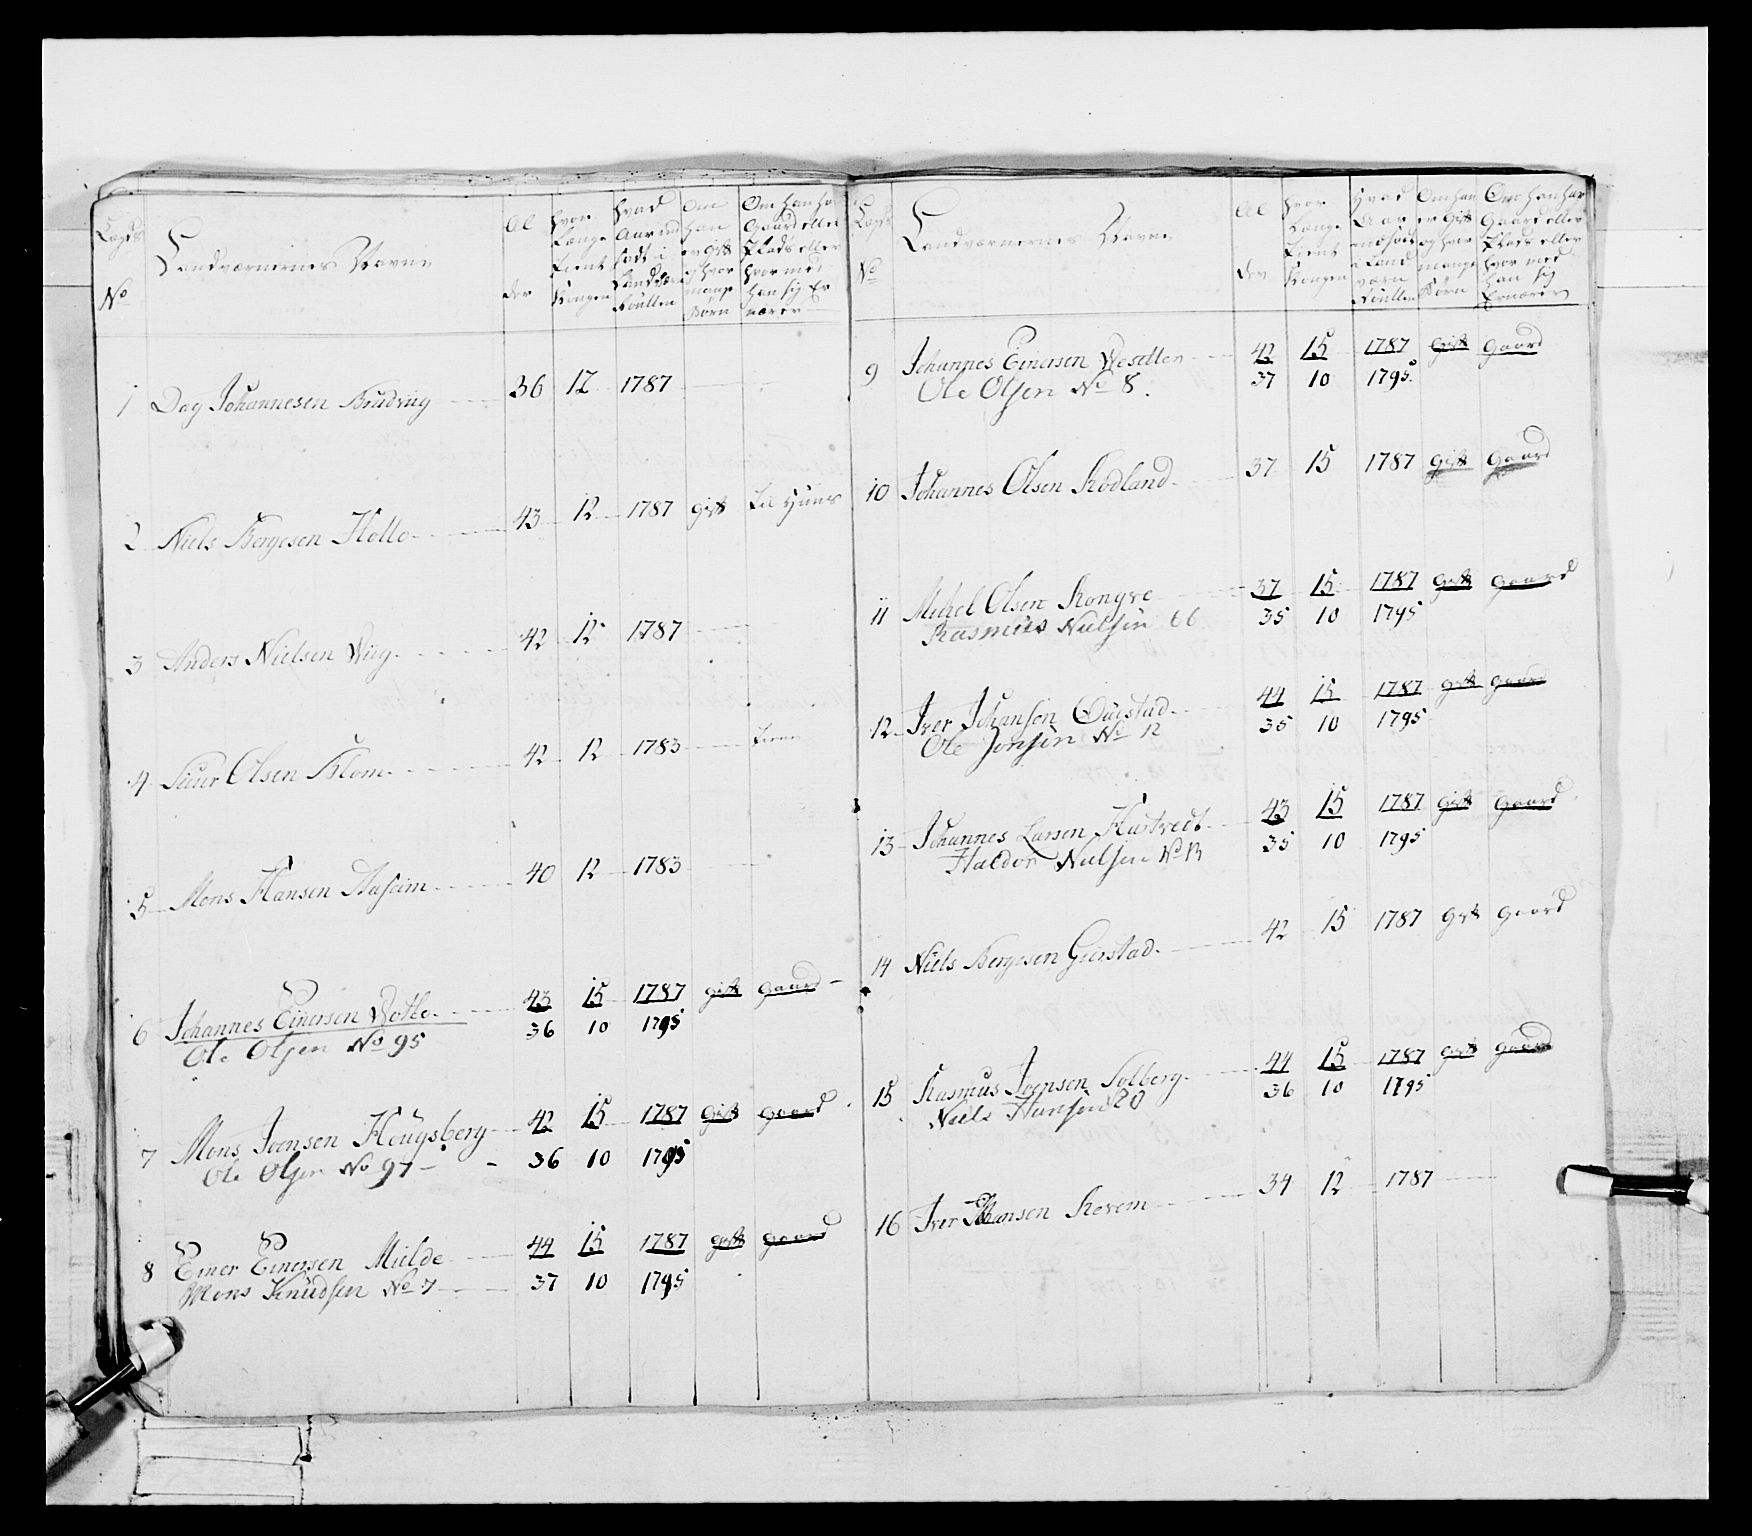 Lægds No
Landværnernes Navne
Al der
hvor Længe tient Kongen
hvad Aar ind født i Landvær Roullen
Om han er Gift og hvor mange Børn
Om han har Gaard eller Plads eller hvor med han sig Er nærer
1 Dag Johannesen 36 12 1787
2 Niels Bergesen 43 12 1787 gift til Huus
3 Anders Nielsen 42 12 1787
4 Siur Olsen Klom 42 12 1783
5 Mons Hansen 40 12 1783
6 Johannes Einersen 43 15 1787 gift gaard
Ole Olsen No 95 36 10 1795
7 Mons Joensen Hougsberg 42 15 1787 gift gaard
Ole Olsen No 97 36 10 1795
8 Einer Einersen Mielde 44 15 1787 gift gaard
Mons Knudsen No 7 37 10 1795
Lægds No
Landværnernes Navne
Al der
hvor Længe tient Kongen
Hvad Aar indsadt i Land værn Roullen
Om han er Gift og hvor mange Børn
Om han har Gaard eller Plads eller hvor med han sig Ernærer
9 Johannes Einersen 42 15 1787 gift gaard
Ole Olsen No 8. 37 10 1795
10 Johannes Olsen Rødland 37 15 1787 gift gaard
11 Michel Olsen 37 15 1787 gift gaard
Rasmus Nielsen 66 35 10 1795
12 Iver Johansen 44 15 1787 gift gaard
Ole Jonsen No 12 35 10 1795
13 Johannes Larsen Hustvedt 43 15 1787 gift gaard
Haldor Nielsen No 13 35 10 1795
14 Niels Bergesen Gierstad 42 15 1787 gift gaard
15 Rasmus Joensen Solberg 44 15 1787 gift gaard
Niels Hansen 20 36 10 1795
16 Iver Johansen 34 12 1787